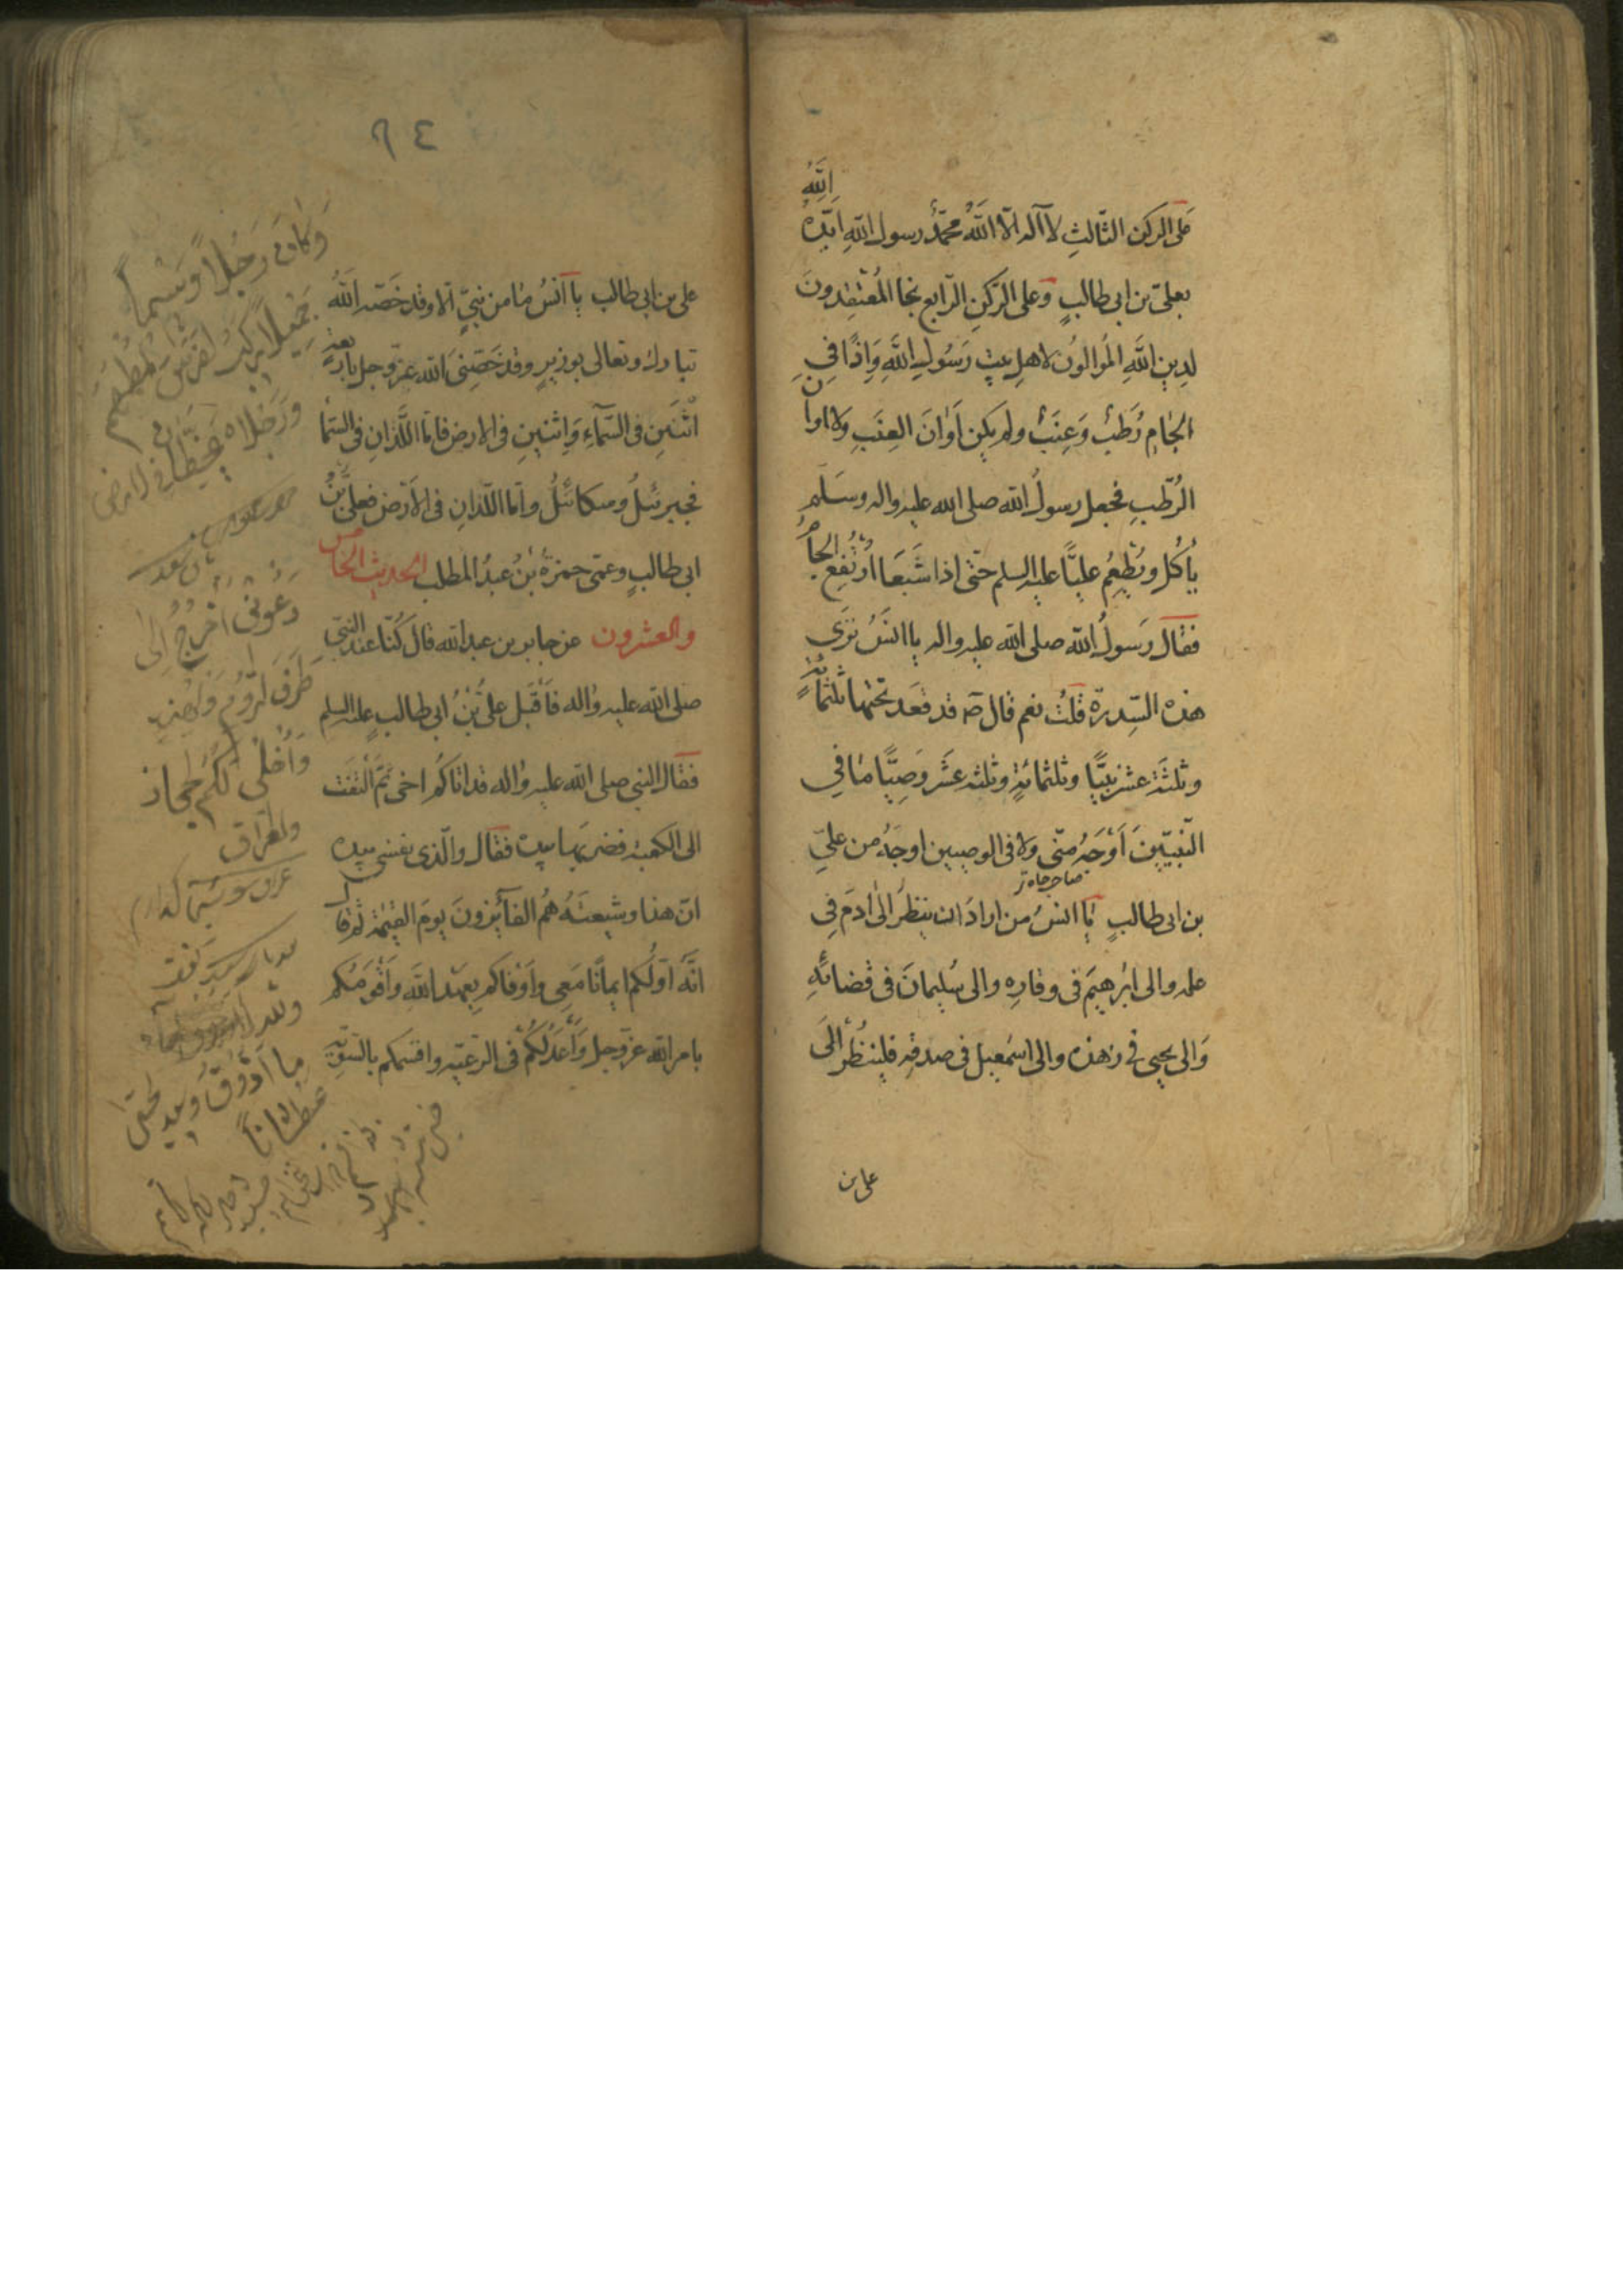 على الركن الثّالثِ لآ اله الّا اللّٰهُ محمّدٌ رسول اللّٰهِ ايّدهُ اللّٰهُ
بعلىّ بن ابى طالبٍ وَعلى الرّكنِ الرّابعِ نجا المُعْتقِدُونَ
لدِينِ اللّٰهِ المُوالُونَ لاهلِ بيتِ رَسُولِ اللّٰهِ وَاِذًا فِى
الجامِ رُطَبٌ وَعِنَبٌ ولم يكن اَوٰانَ العِنَبِ ولا اوان
الرُّطَبِ فجعل رسولُ اللّٰه صلى الله عليه واله وسَلّم
يأكُلُ ويُطْعِمُ عليًّا عليه السلم حتّى اذا شَبَعَا ارْتُفِعَ الجامُ
فقال رَسولُ اللّٰه صلى اللّٰه عليه واله يا انسُ تَرٰى
هذه السِّدرة قلتُ نعم قال صه قد قعَد تحتها ثلثمائةٍ
وثلثةَ عشر نبيًّا وثلثمائةٍ وثلثه عشر وَصِيًّا مٰا فى
النّبيّينَ اَوْجَهُ مِنّى ولا فى الوصيين اوجَهُ من علىّ
بن ابى طالبٍ يٰا انسُ من ارادَ ان ينظُرَ الٰى ادَمَ فِى
علمه والى ابْرٰهيمَ فى وقارِهِ والى سُليمانَ فى قضائهِ
وَالى يحيى فى زهْده والى اسْمٰعيل فى صدقهِ فلينظُرْ الَى
على بن
٦٤
على بن ابى طالب يا انسُ مٰا من نبىٍّ الّا وقد خَصّه اللّٰهُ
تبارك وتعالى بوزيرٍ وقد خَصّنِىَ اللّٰه عزّ وجلّ باربعةٍ
اثْنَينِ فى السّمآءِ وَاِثنينِ فى الارض فامّا اللّذانِ فى السّمٰا
فجبرئيلُ وميكائيلُ وامّا اللّذانِ فى الاَرْض فعلىُّ بْنُ
ابى طالبٍ وعمّى حمزةُ بْنُ عبدُ المطلب الحديث الخامس
والعشرون عن جابر بن عبد اللّٰه قال كُنّا عند النبّى
صلى اللّٰه عليه وٰاله فاَقْبَل علىُّ بْنُ ابى طالبٍ عليه السلم
فقال النبى صلى اللّٰه عليه وٰاله قد اتاكُم اخى ثمّ الْتفَت
الى الكعبة فضربَها بيده فقال والّذى نفسى بيده
انّ هذا وشيعتَهُ هُم الفآئِزونَ يومَ القيٰمة ثم قال
انّهُ اوّلُكم ايمانًا مَعِى واَوْفاكم بِعَهْد اللّٰهِ وَاَقْوَمُكم
بامر اللّٰه عزّ وجل وَاَعْدَلُكُمْ فى الرّعيّه واقسَمُكم بالسّويّة
وكان رَجُلاً وَسْيماً
جَمْيلاً يَركبُ الفَرسَ المُطَهَّم
ورَجْلاه
دَعُونى اَخْرج اِلى
طَرَف الرّوُم
وَاُخلّى لكُم الحجاز
والعرٰاق